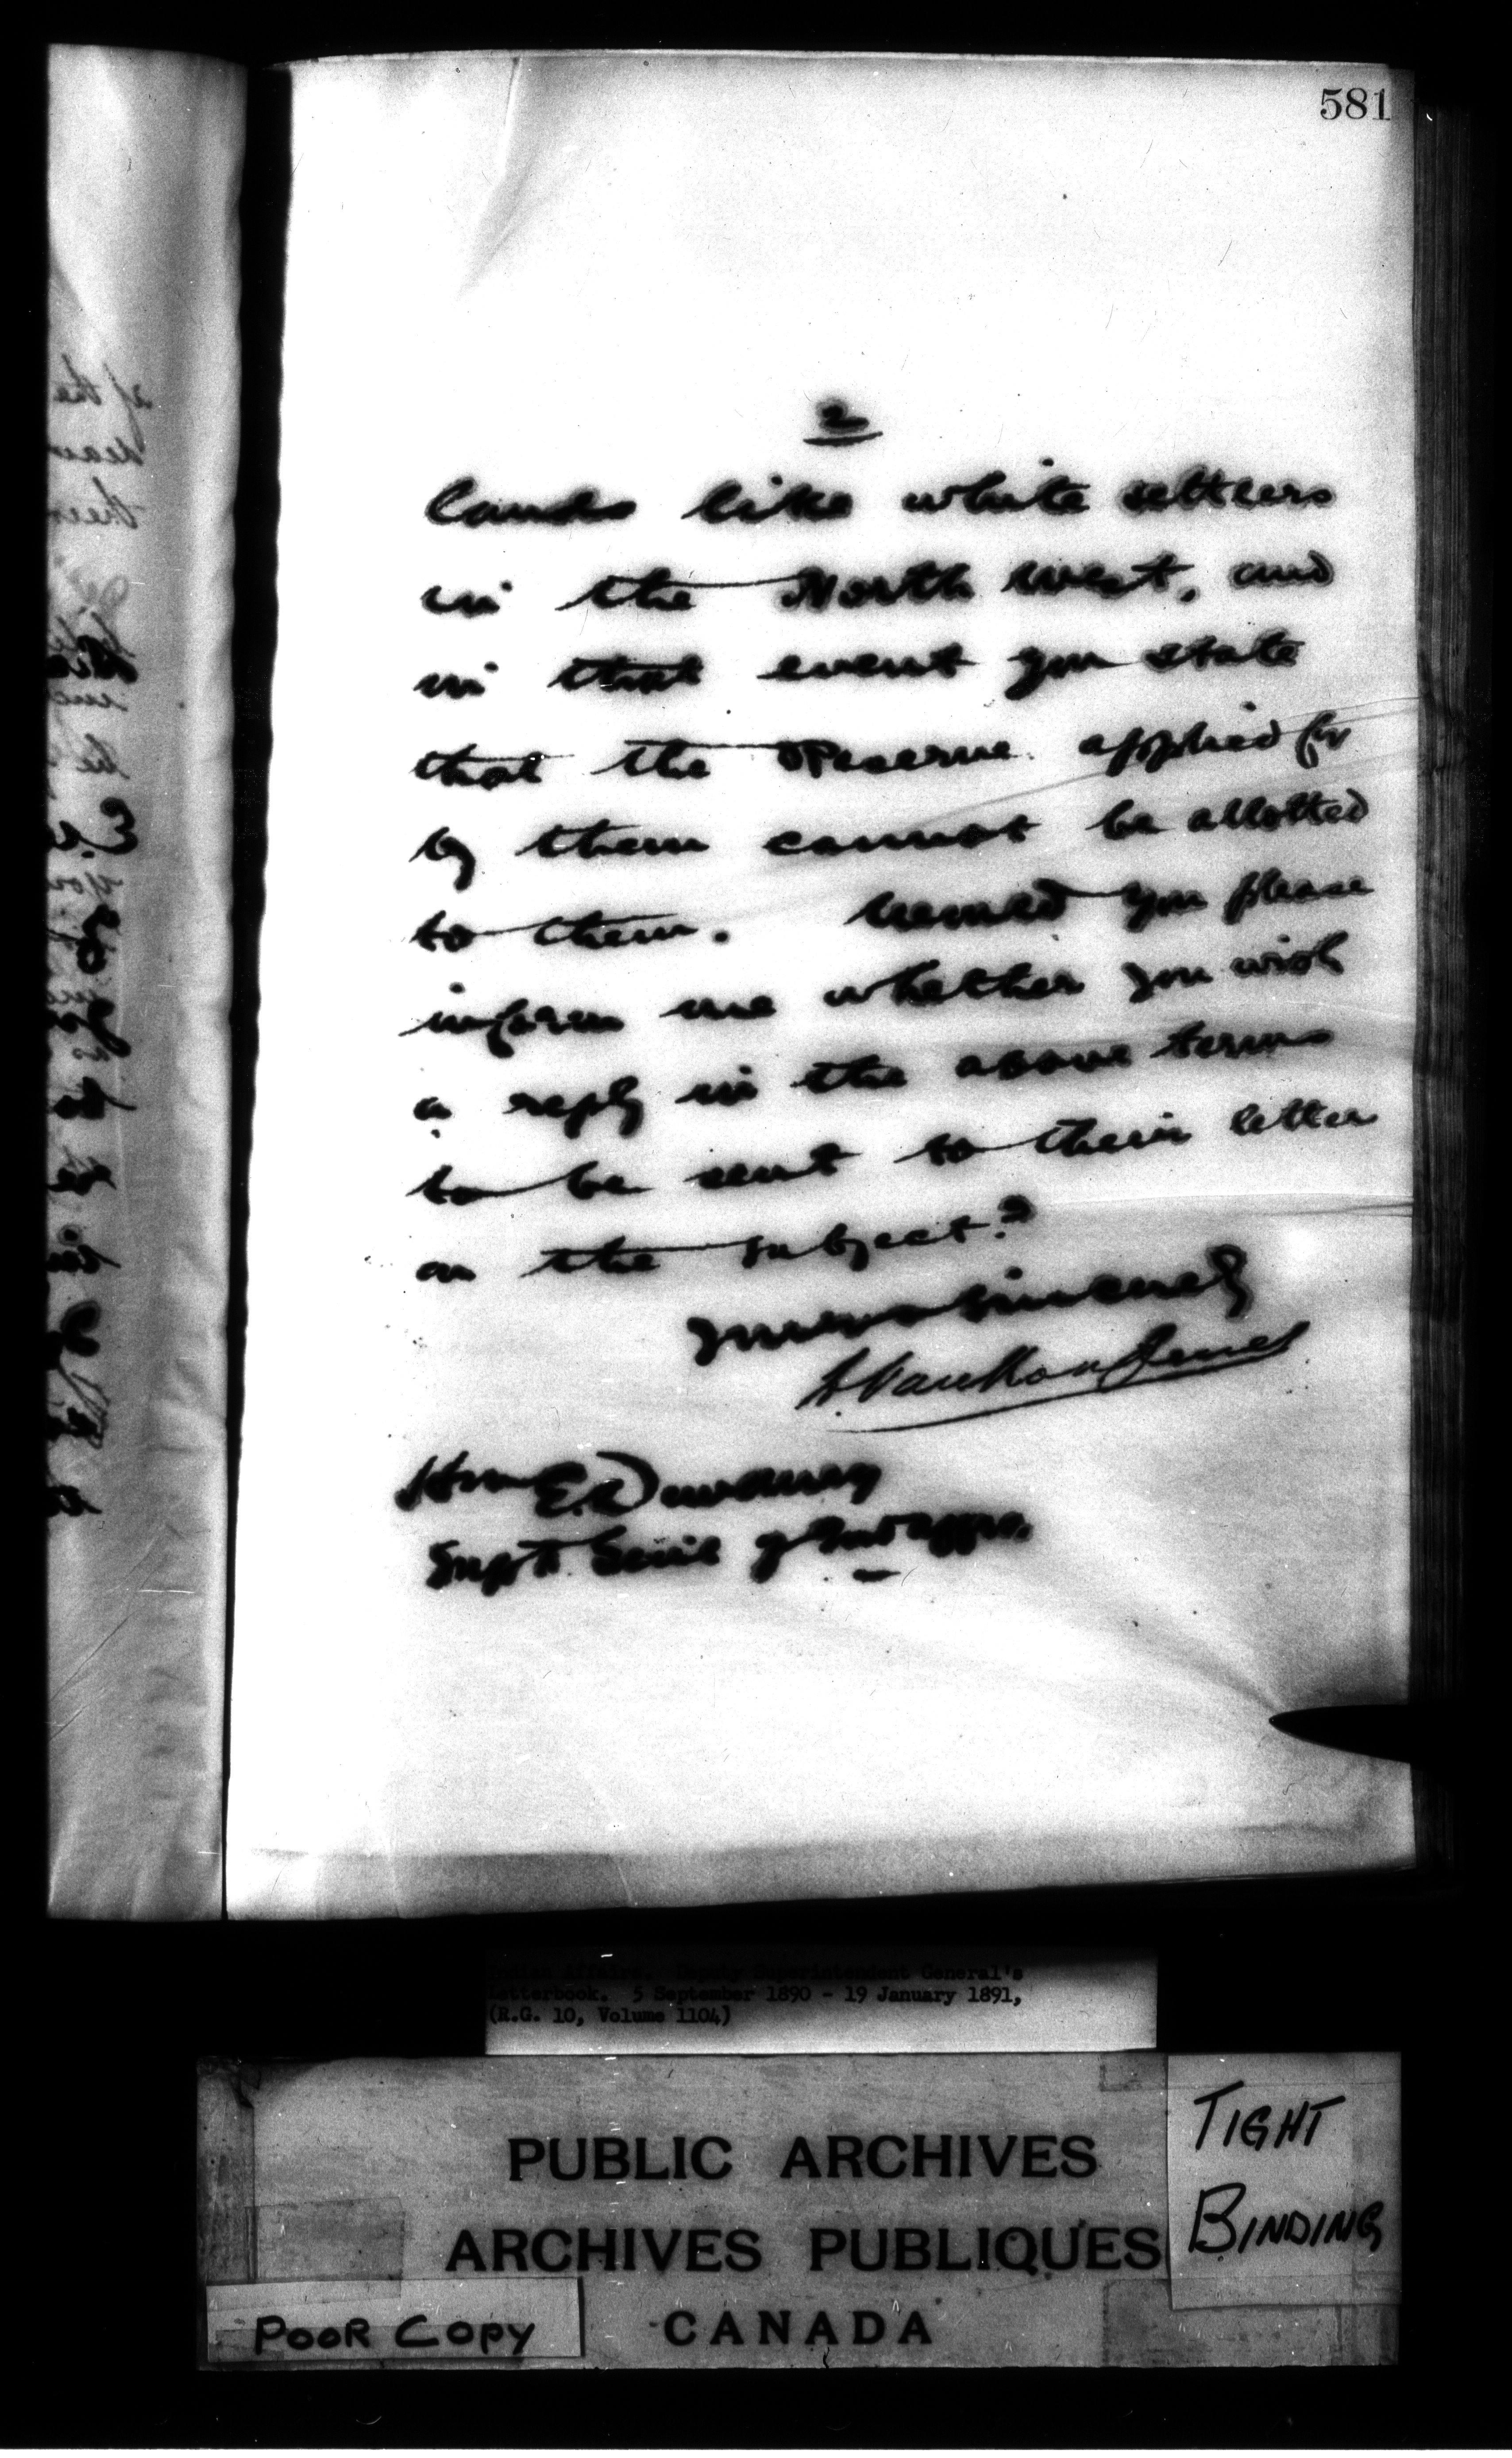 581
2
lands like white settlers
in the North West, and
in that event you state
that the Reserve applied for
by them cannot be allotted
to them. Would you please
inform me whether you wish
a reply in the above terms
to be sent to their letter
on the subject?
Yours sincerely
L Vankoughnet
Hon E. Dewdney
Supt. Genl of Ind Affrs.
of the
Indian Affairs. Deputy Superintendent General's
Letterbook. 5 September 1890 - 19 January 1891,
(R.G. 10, Volume 1104)
PUBLIC ARCHIVES
ARCHIVES PUBLIQUES
CANADA
TIGHT
BINDING
POOR COPY